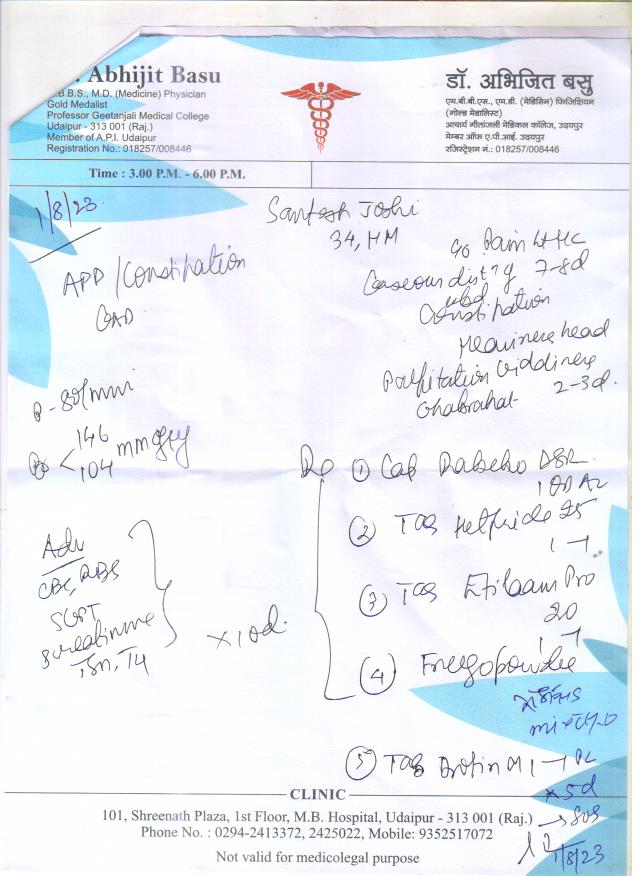 Abhijit Basu
B.B.S., M.D. (Medicine) Physician
Gold Medalist
Professor Geetanjali Medical College
Udaipur - 313 001 (Raj.)
Member of A.P.I. Udaipur
Registration No.: 018257/008446
डॉ. अभिजित बसु
एम.बी.बी.एस., एम.डी. (मेडिसिन) फिजिशियन
(गोल्ड मेडालिस्ट)
आचार्य गीतांजली मेडिकल कॉलेज, उदयपुर
मेम्बर ऑफ ए.पी.आई. उदयपुर
रजिस्ट्रेशन नं.: 018257/008446
Time : 3.00 P.M. - 6.00 P.M.
1/8/23
Santosh Joshi
34, HM
APD/Constipation
GAD
c/o Pain
Gaseous dist 7-8d
Constipation
Heaviness head
Palpitation Giddiness
Ghabrahat 2-3d.
P-80/min
146
104 mmHg
Adv
CBC, RBS
SGPT
S creatinine
T4
x10d.
① Cap Rabeko DSR
1 OD AC
② TAB 25
1-1
③ TAB Etilaam Pro
20
④ Freegopowder
⑤ TAB 1-1
x5d
SOS
1/8/23
CLINIC
101, Shreenath Plaza, 1st Floor, M.B. Hospital, Udaipur - 313 001 (Raj.)
Phone No. : 0294-2413372, 2425022, Mobile: 9352517072
Not valid for medicolegal purpose